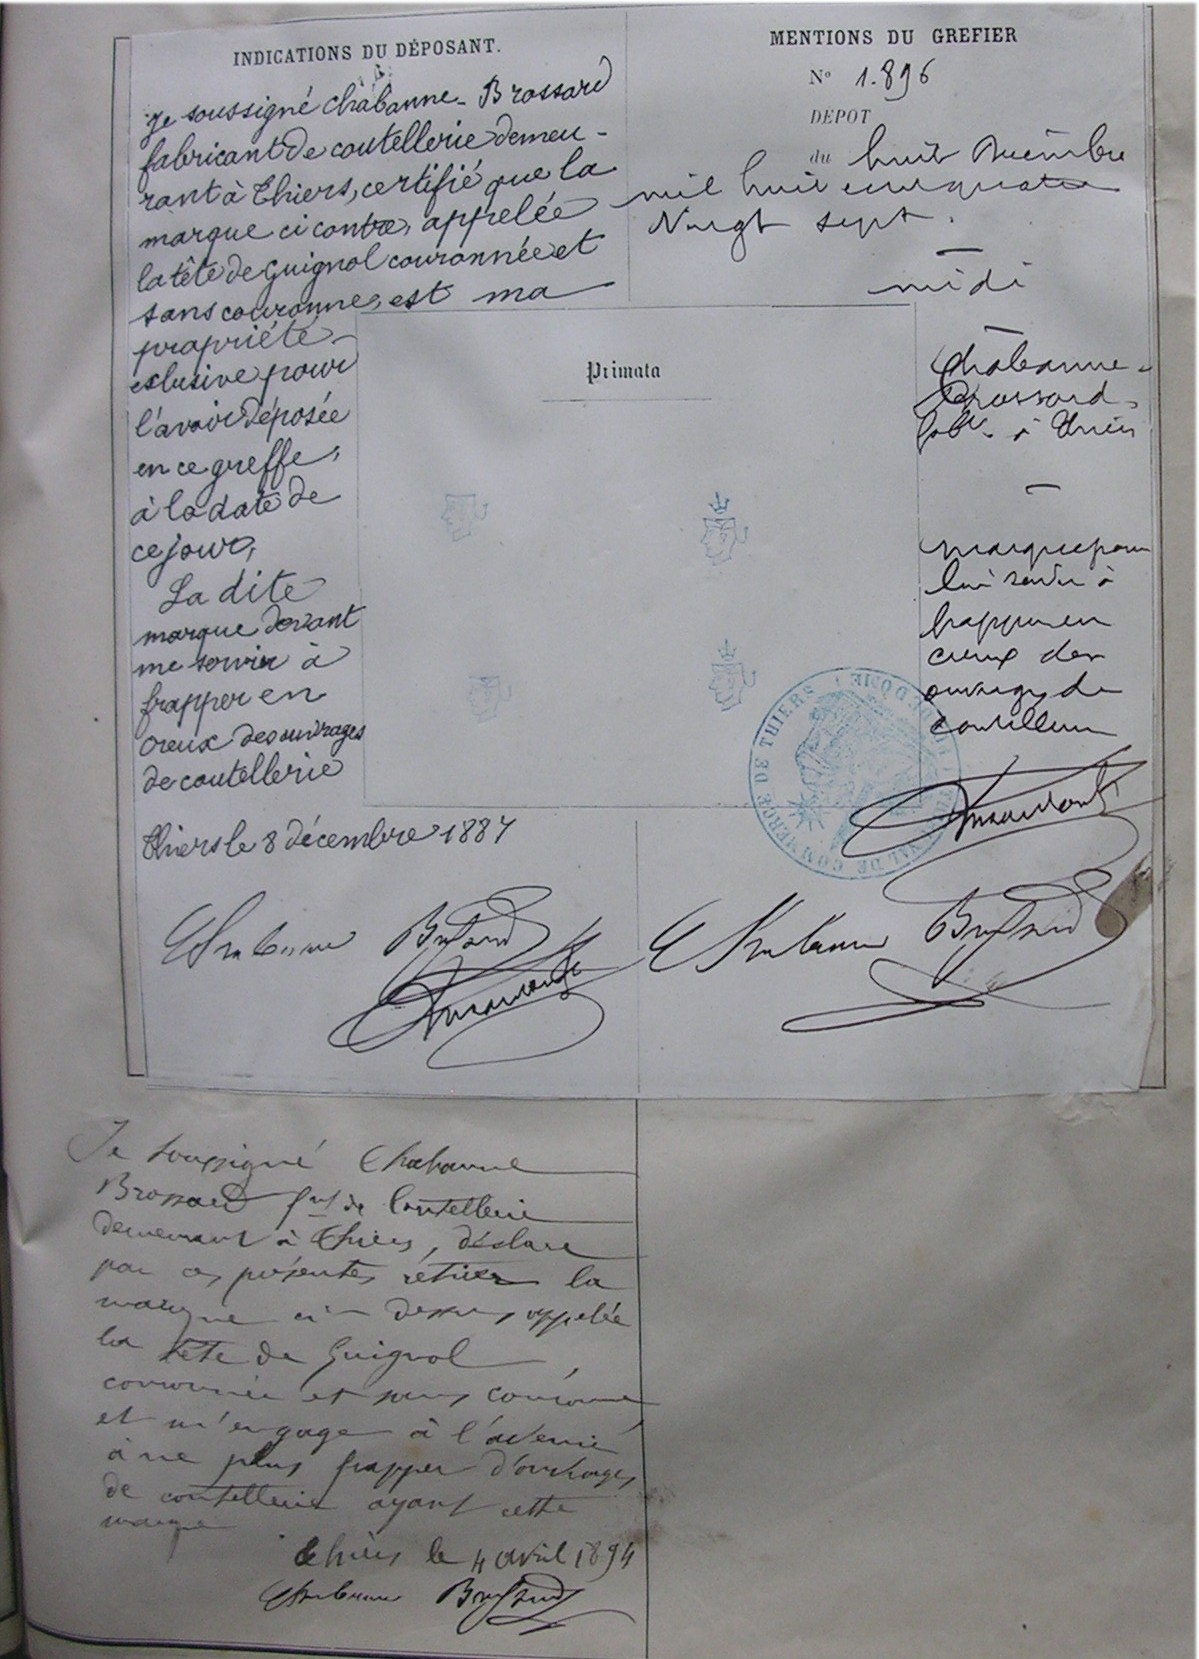 INDICATIONS DU DÉPOSANT.
Je soussigné Chabanne-Brossard
fabricant de coutellerie demeu-
rant à Thiers, certifié que la
marque ci contre, appelée
la tête de Guignol couronnée et
sans couronne, est ma
propriété
exlusive pour
l'avoir déposée
en ce greffe,
à la date de
ce jour,
La dite
marque devant
me servir à
frapper en
creux des ouvrages
de coutellerie
Thiers le 8 décembre 1887
Chabanne Brossard
MENTIONS DU GREFIER
N° 1.896
DÉPOT
du huit Décembre
mil huit cent quatre
Vingt sept.
midi
Chabanne-
Brossard,
fabt. à Thiers
marque pour
lui servir à
frapper en
creux des
ouvrages de
coutellerie
Primata
TRIBUNAL DE COMMERCE DE THIERS (PUY DE DÔME)
Chabanne Brossard
Je soussigné Chabanne
Brossard fant de Coutellerie
demeurant à Thiers, déclare
par ces présentes rétirer la
marque ci-dessus appelée
la tête de Guignol
couronnée et sans couronne
et m'engage à l'avenir
à ne plus frapper d'ouvrages
de coutellerie ayant cette
marque
Thiers le 4 avril 1894
Chabanne Brossard